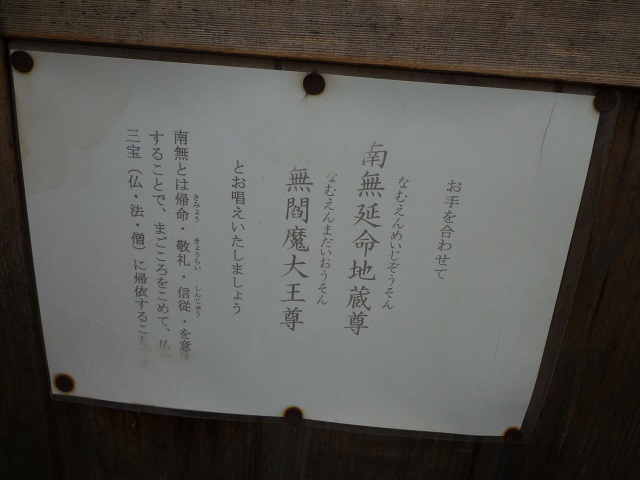 お手を合わせて
なむえんめいじぞうそん
南無延命地蔵尊
なむえんまだいおうそん
無閻魔大王尊
とお唱えいたしましょう
きみょう きょうらい しんじゅう
南無とは帰命・敬礼・信従・を意
することで、まごころをこめて、仏
三宝（仏・法・僧）に帰依するこ